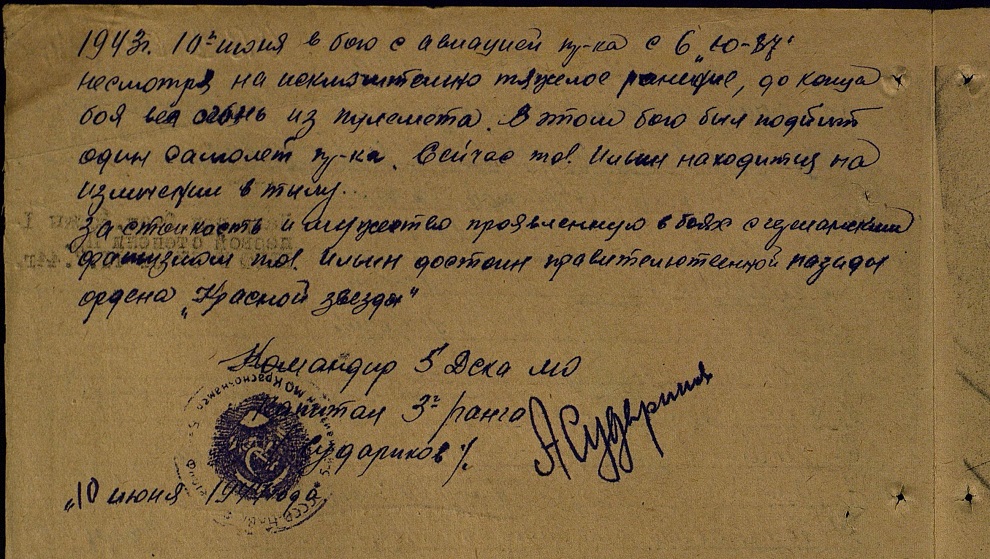 1943г. 10го июня в бою с авиацией пр-ка с 6 „Ю-87"
несмотря на исключительно тяжелое ранение, до конца
боя вел огонь из пулемета. В этом бою был подбит
один самолет пр-ка. Сейчас тов. Ильин находится на
излечении в тылу.
За стойкость и мужество проявленную в боях с германским
фашизмом тов. Ильин достоин правительственной награды
ордена „Красной звезды"
Командир 5 Дска МО
Капитан 3го ранга
Судариков /.
„10 июня 194 года